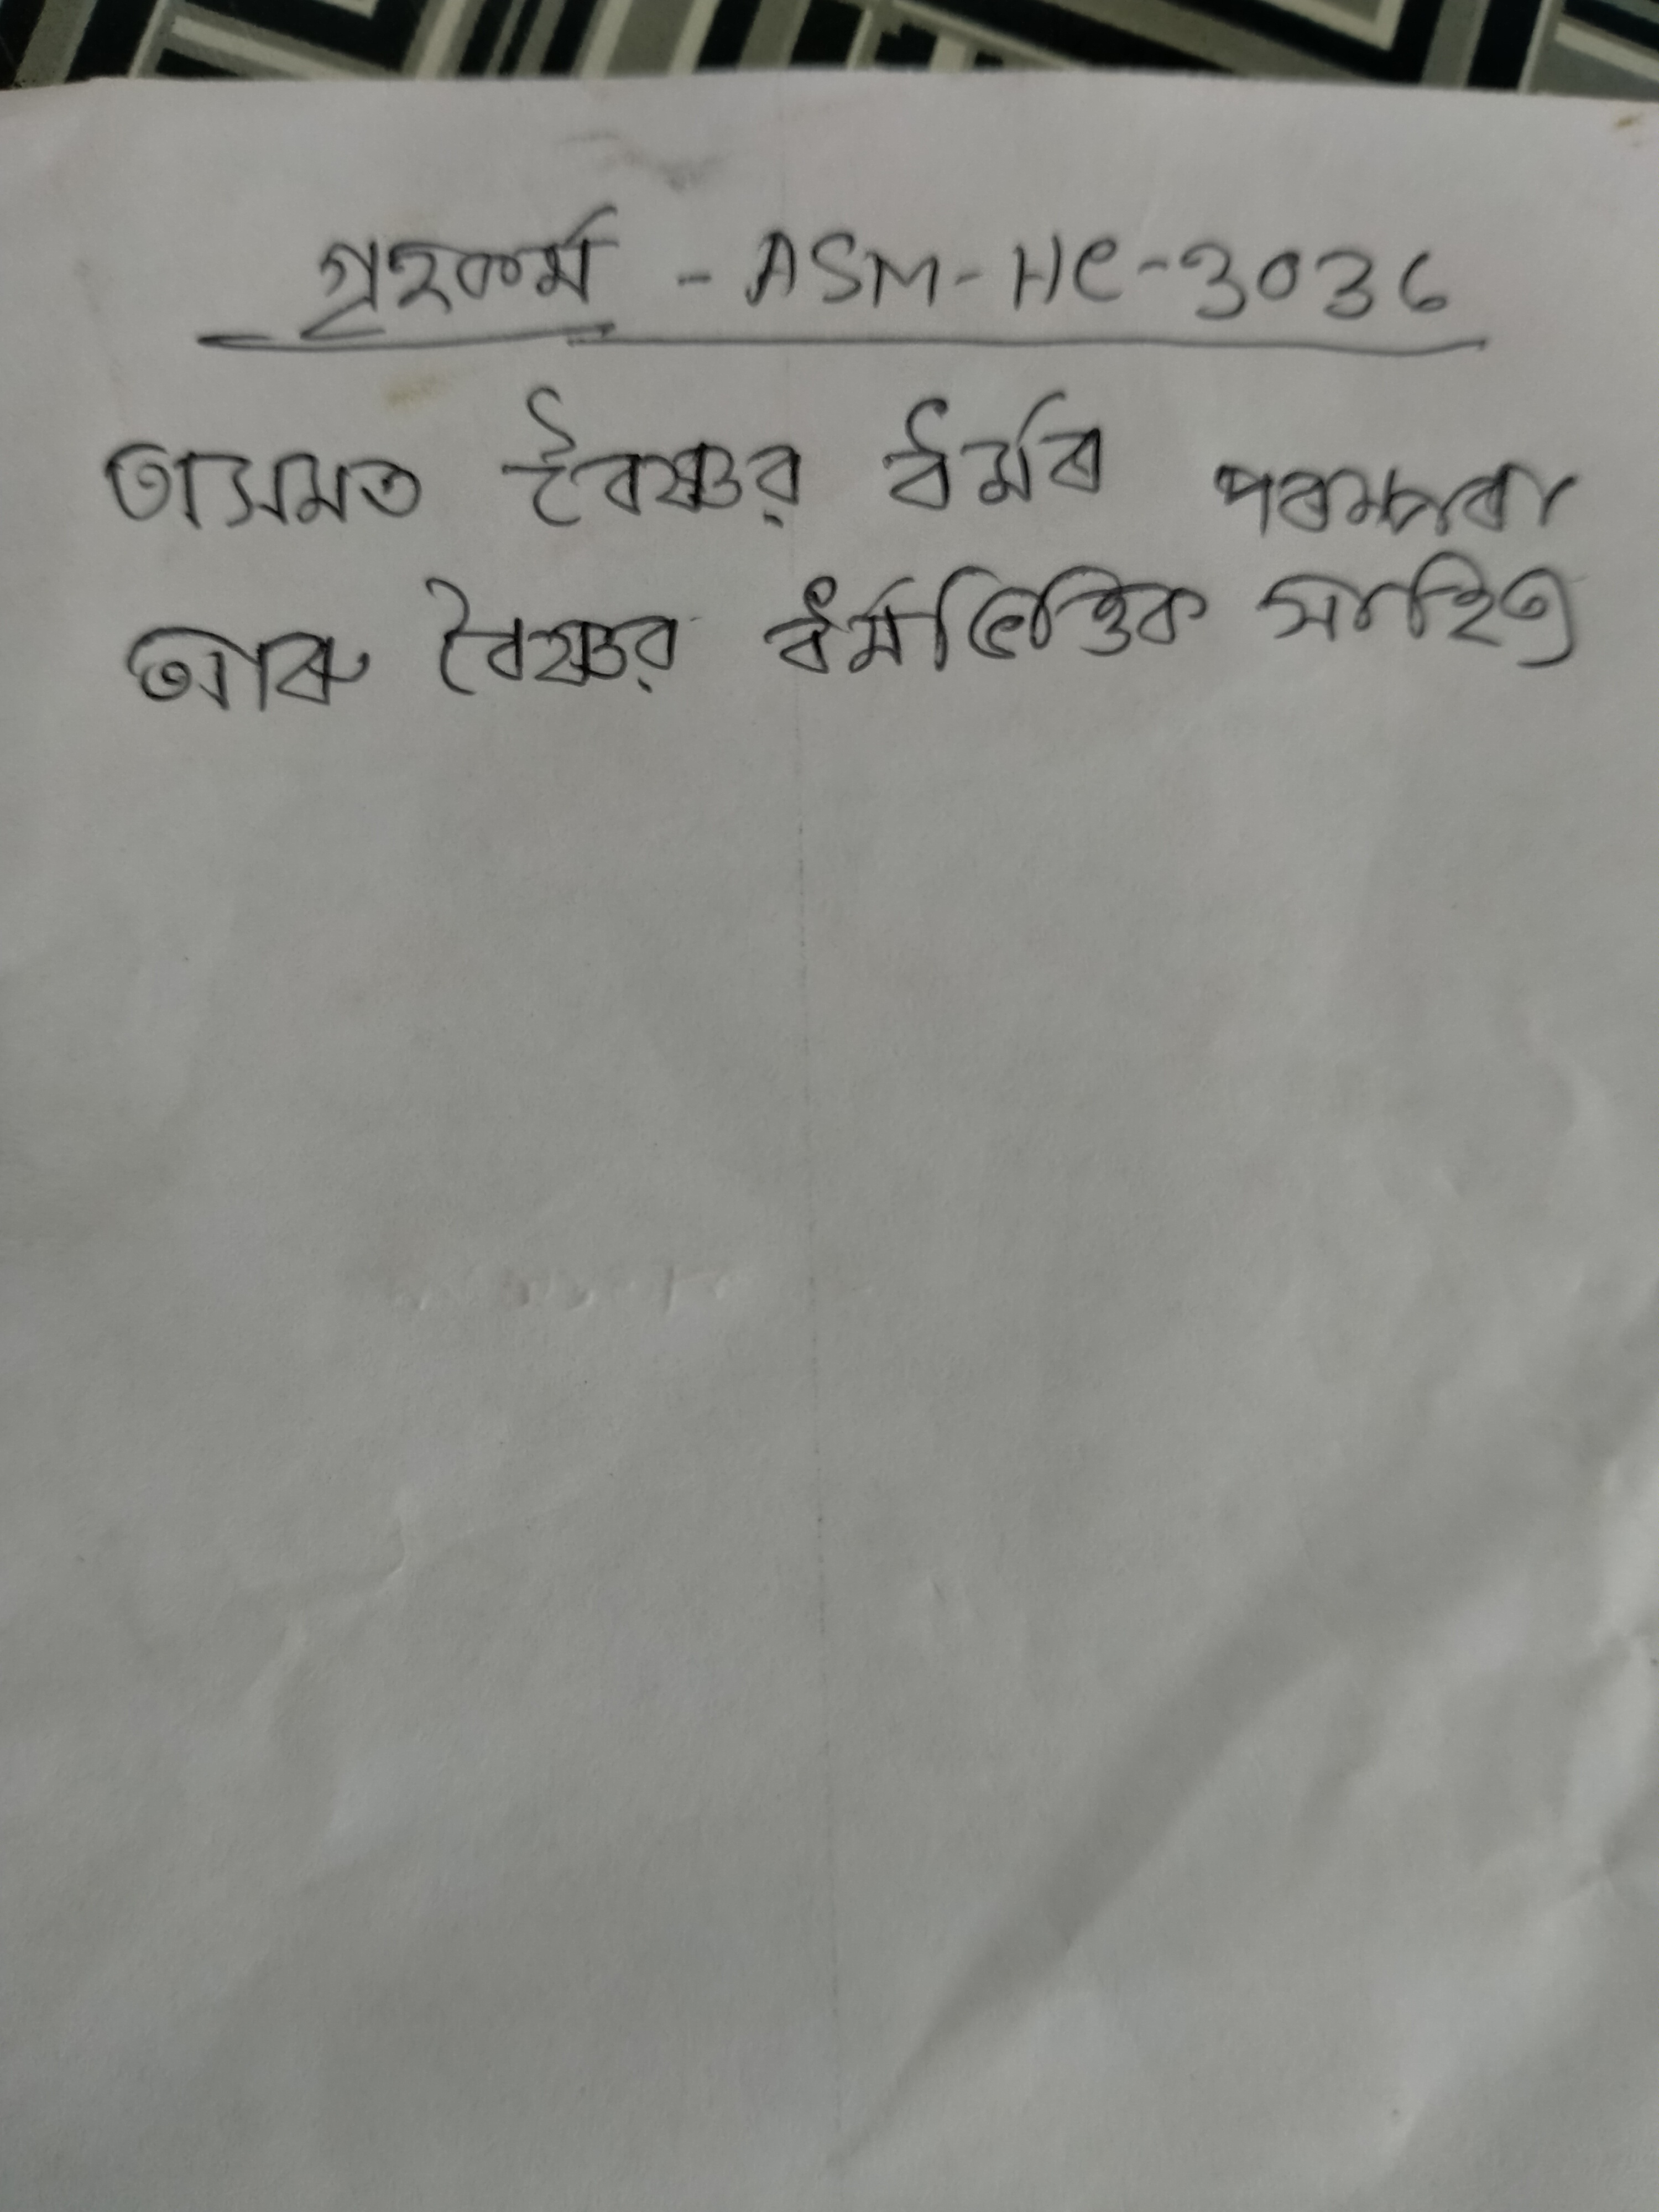 গৃহকৰ্ম - ASM-HC-3036
অসমত বৈষ্ণৱ ধৰ্মৰ পৰম্পৰা
আৰু বৈষ্ণৱ ধৰ্মভিত্তিক সাহিত্য